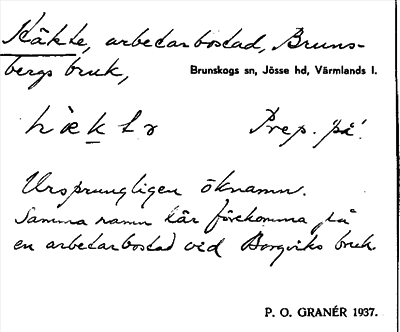 Häkte, arbetarbostad, Bruns-
bergs bruk,
Brunskogs sn, Jösse hd, Värmlands l.
Prep. på.
Ursprungligen öknamn.
Samma namn lär förekomma på
en arbetarbostad vid Borgviks bruk.
P. O. GRANÉR 1937.